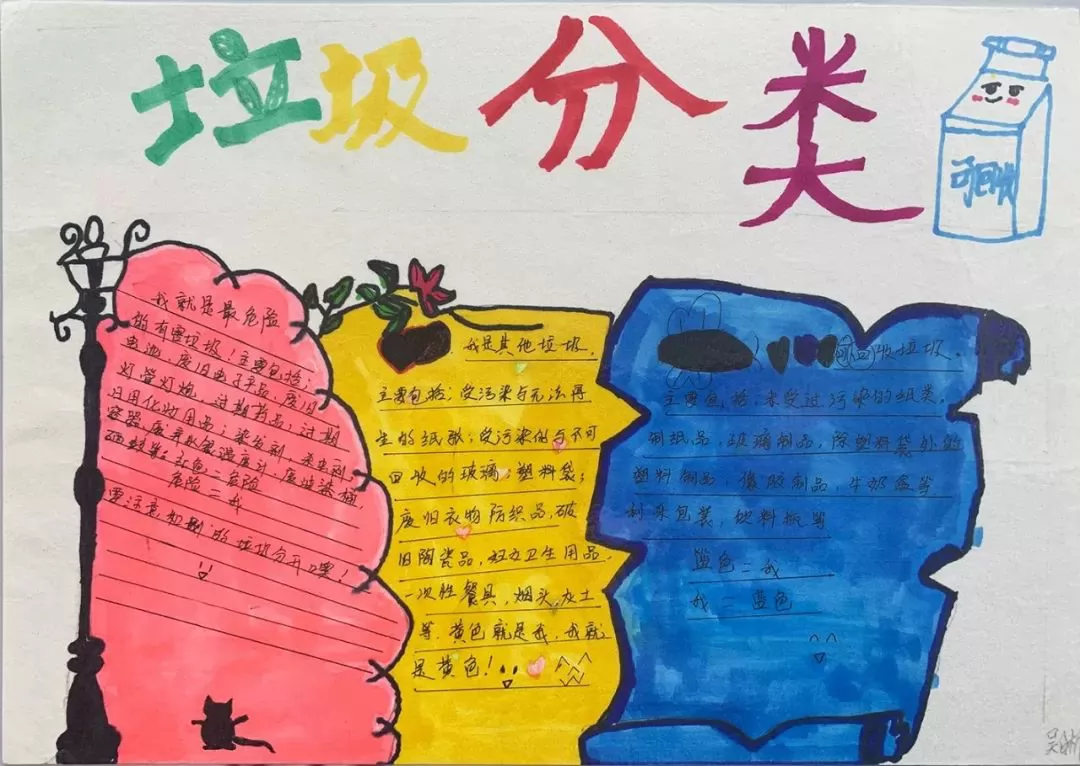 垃圾分类
可回收
我就是最危险
的有害垃圾！主要包括：
电池，废旧电子产品，废旧
灯管灯泡，过期药品，过期
日用化妆用品，染发剂，杀虫剂，
容器，废弃水银温度计，废油漆桶，
红色二危险
危险二我
要注意和别的垃圾分开噢！
我是其他垃圾，
主要包括：受污染与无法再
生的纸张；受污染的与不可
回收的玻璃；塑料袋；
废旧衣物纺织品，破
旧陶瓷品，妇女卫生用品，
一次性餐具，烟头，灰土
等，黄色就是我，我就
是黄色！
回收垃圾，
主要包括：未受过污染的纸类，
制纸品，玻璃制品，除塑料袋外的
塑料制品，橡胶制品，牛奶盒等
利乐包装，饮料瓶等
蓝色二我
我二蓝色